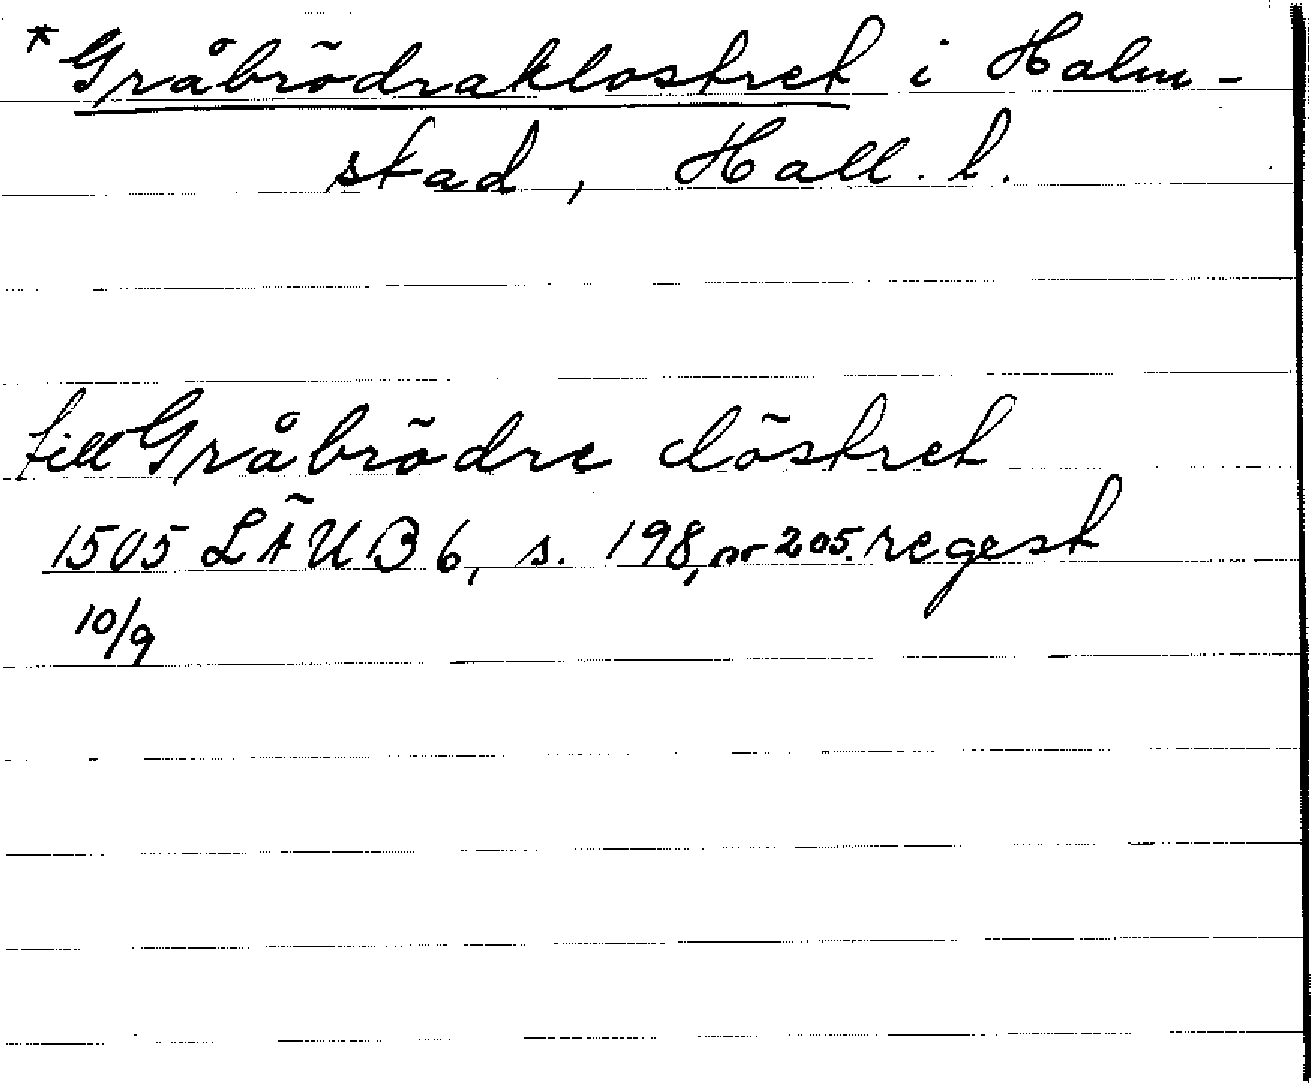 *Gråbrödraklostret i Halm-
stad, Hall. l.
till Gråbrödre clöstret
1505 LÄUB 6, s. 198, nr 205. regest
10/9